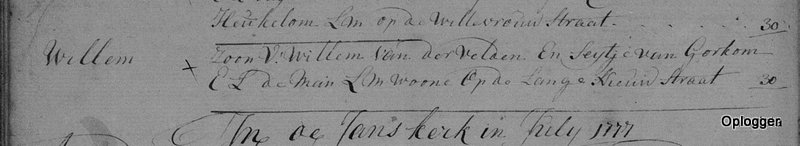 Heukelom Lm op de Willevrouw Straat. 30
Willem
Zoon V. Willem van der Velden En Seytje van Gorkom
x E L de Man Lm woone Op de Lange Nieuw Straat 30
In de Jans kerk in July 1777
Oploggen